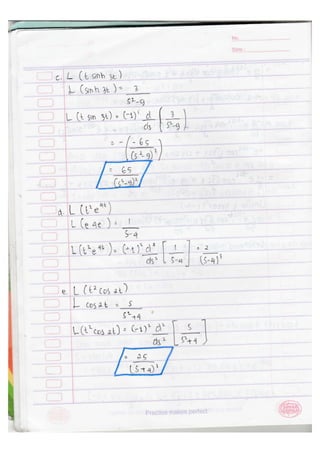 No.
Date
c. L (t sinh 3t)
L (sinh 3t) = 3
s²-9
L (t sin 3t) = (-1)' d [ 3 ]
ds s²-9
= - ( -6s )
(s²-9)²
= 6s
(s²-9)²
d. L (t² e⁴ᵗ)
L (e 4e) = 1
s-4
L (t² e⁴ᵗ) = (-1)² d² [ 1 ] = 2
ds² s-4 (s-4)³
e. L (t² cos 2t)
L cos 2t = s
s²+4
L (t² cos 2t) = (-1)² d² [ s ]
ds² s²+4
= 2s
(s+4)³
Practice makes perfect